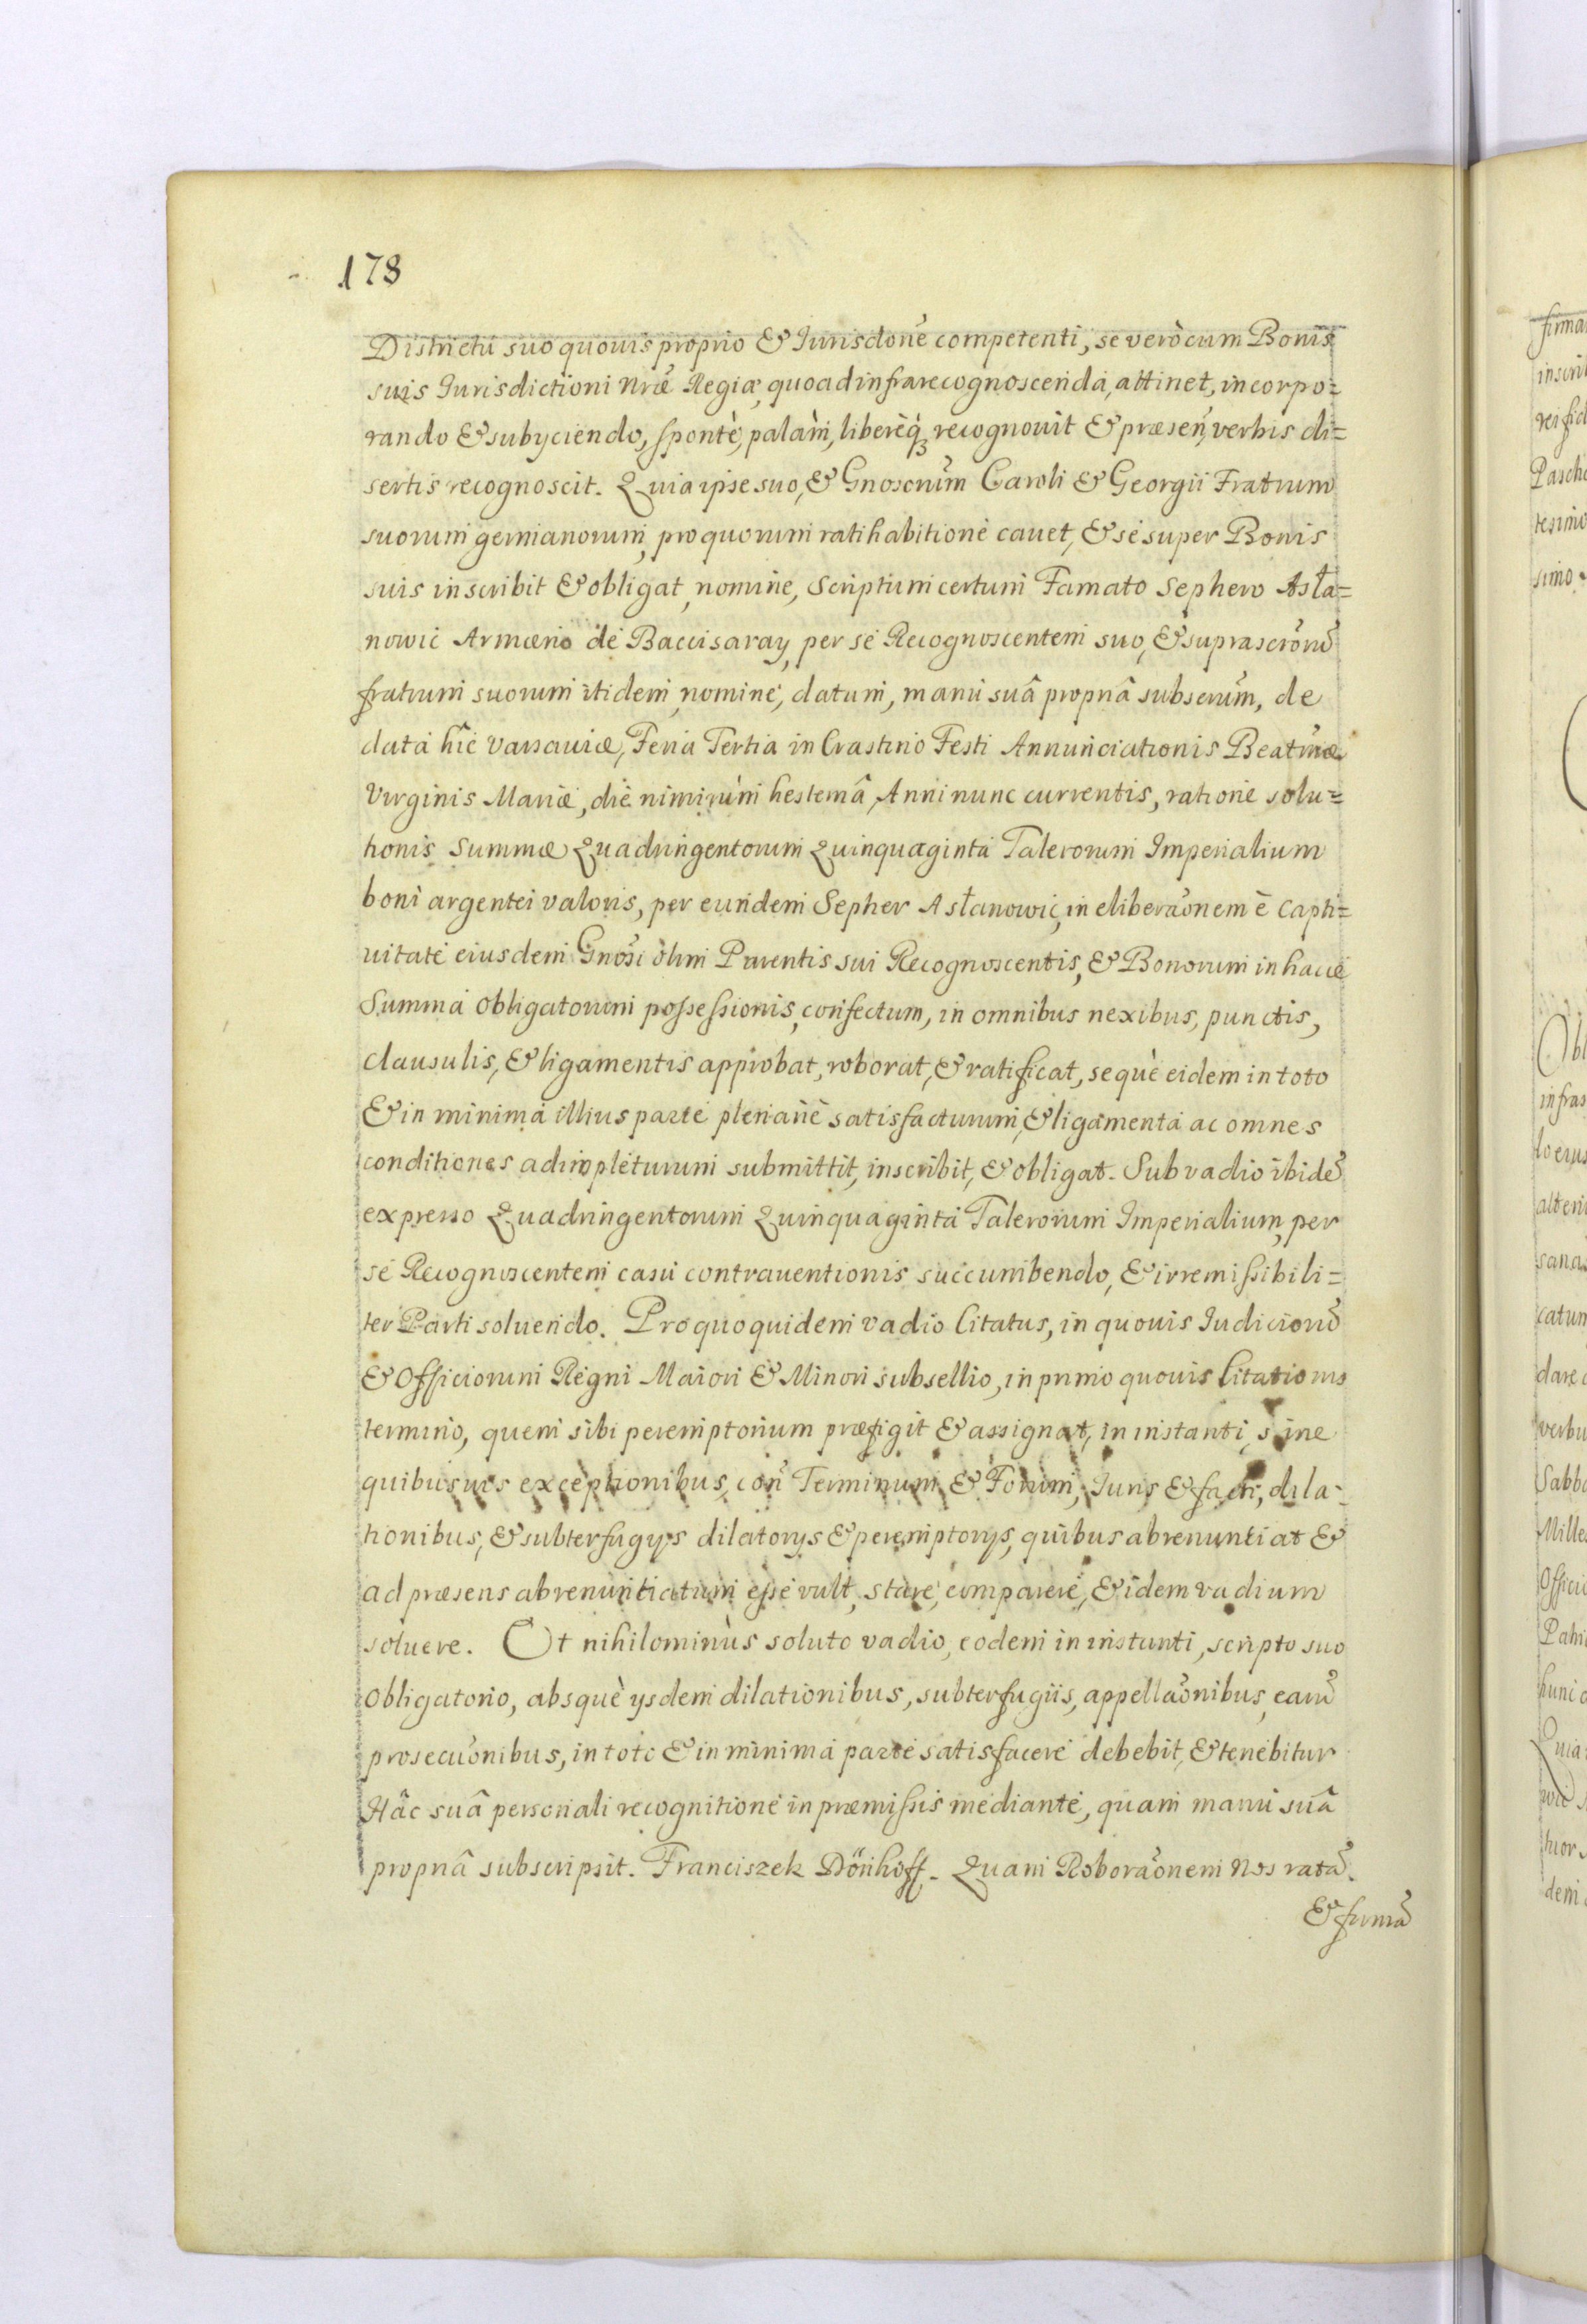 178
Districtu suo quouis proprio & Iurisdone competenti, se verò cum Bonis
suis Iurisdictioni Nræ Regiæ, quoad infrarecognoscenda, attinet, incorpo=
rando & subyciendo, spontè, palàm, liberèq; recognouit & præsen, verbis di=
sertis recognoscit. Quia ipse suo, & Gnosorum Caroli & Georgii Fratrum
suorum germanorum, pro quorum ratihabitione cauet, & se super Bonis
suis inscribit & obligat, nomine, Scriptum certum Famato Sephero Asła=
nowic Armæno de Baccisaray, per se Recognoscentem suo, & suprascrorum
fratrum suorum itidem nomine, datum, manu suâ propriâ subscrum, de
data hîc Varsauiæ, Feria Tertia in Crastino Festi Annunciationis Beatmæ
Virginis Mariæ, die nimirùm hesternâ Anni nunc currentis, ratione solu=
tionis Summæ Quadringentorum Quinquaginta Talerorum Imperialium
boni argentei valoris, per eundem Sepher Asłanowic, in eliberaonem è capti=
uitate eiusdem Gnosi olim Parentis sui Recognoscentis, & Bonorum in hacce
Summa obligatorum possessionis, confectum, in omnibus nexibus, punctis,
clausulis, & ligamentis approbat, roborat, & ratificat, sequè eidem in toto
& in minima illius parte plenariè satisfacturum, & ligamenta ac omnes
conditiones adimpleturum submittit, inscribit, & obligat. Sub vadio ibidẽ
expresso Quadringentorum Quinquaginta Talerorum Imperialium, per
se Recognoscentem casu contrauentionis succumbendo, & irremissibili=
ter Parti soluendo. Pro quo quidem vadio Citatus, in quouis Iudiciorũ
& Officiorum Regni Maiori & Minori subsellio, in primo quouis Citationis
termino, quem sibi peremptorium præfigit & assignat, in instanti, sine
quibusuis exceptionibus, con Terminum & Forum, Iuris & facti, dila-
tionibus, & subterfugys dilatorys & peremptorys, quibus abrenuntiat &
ad præsens abrenuntiatum esse vult, stare, comparere, & idem vadium
soluere. Et nihilominùs soluto vadio, eodem in instanti, scripto suo
obligatorio, absquè ysdem dilationibus, subterfugiis, appellaonibus, earũ
prosecuonibus, in toto & in minima parte satisfacere debebit, & tenebitur
Hâc suâ personali recognitione in præmissis mediante, quam manu suâ
propriâ subscripsit. Franciszek Dönhoff. Quam Roboraonem Nos ratã
& firmã